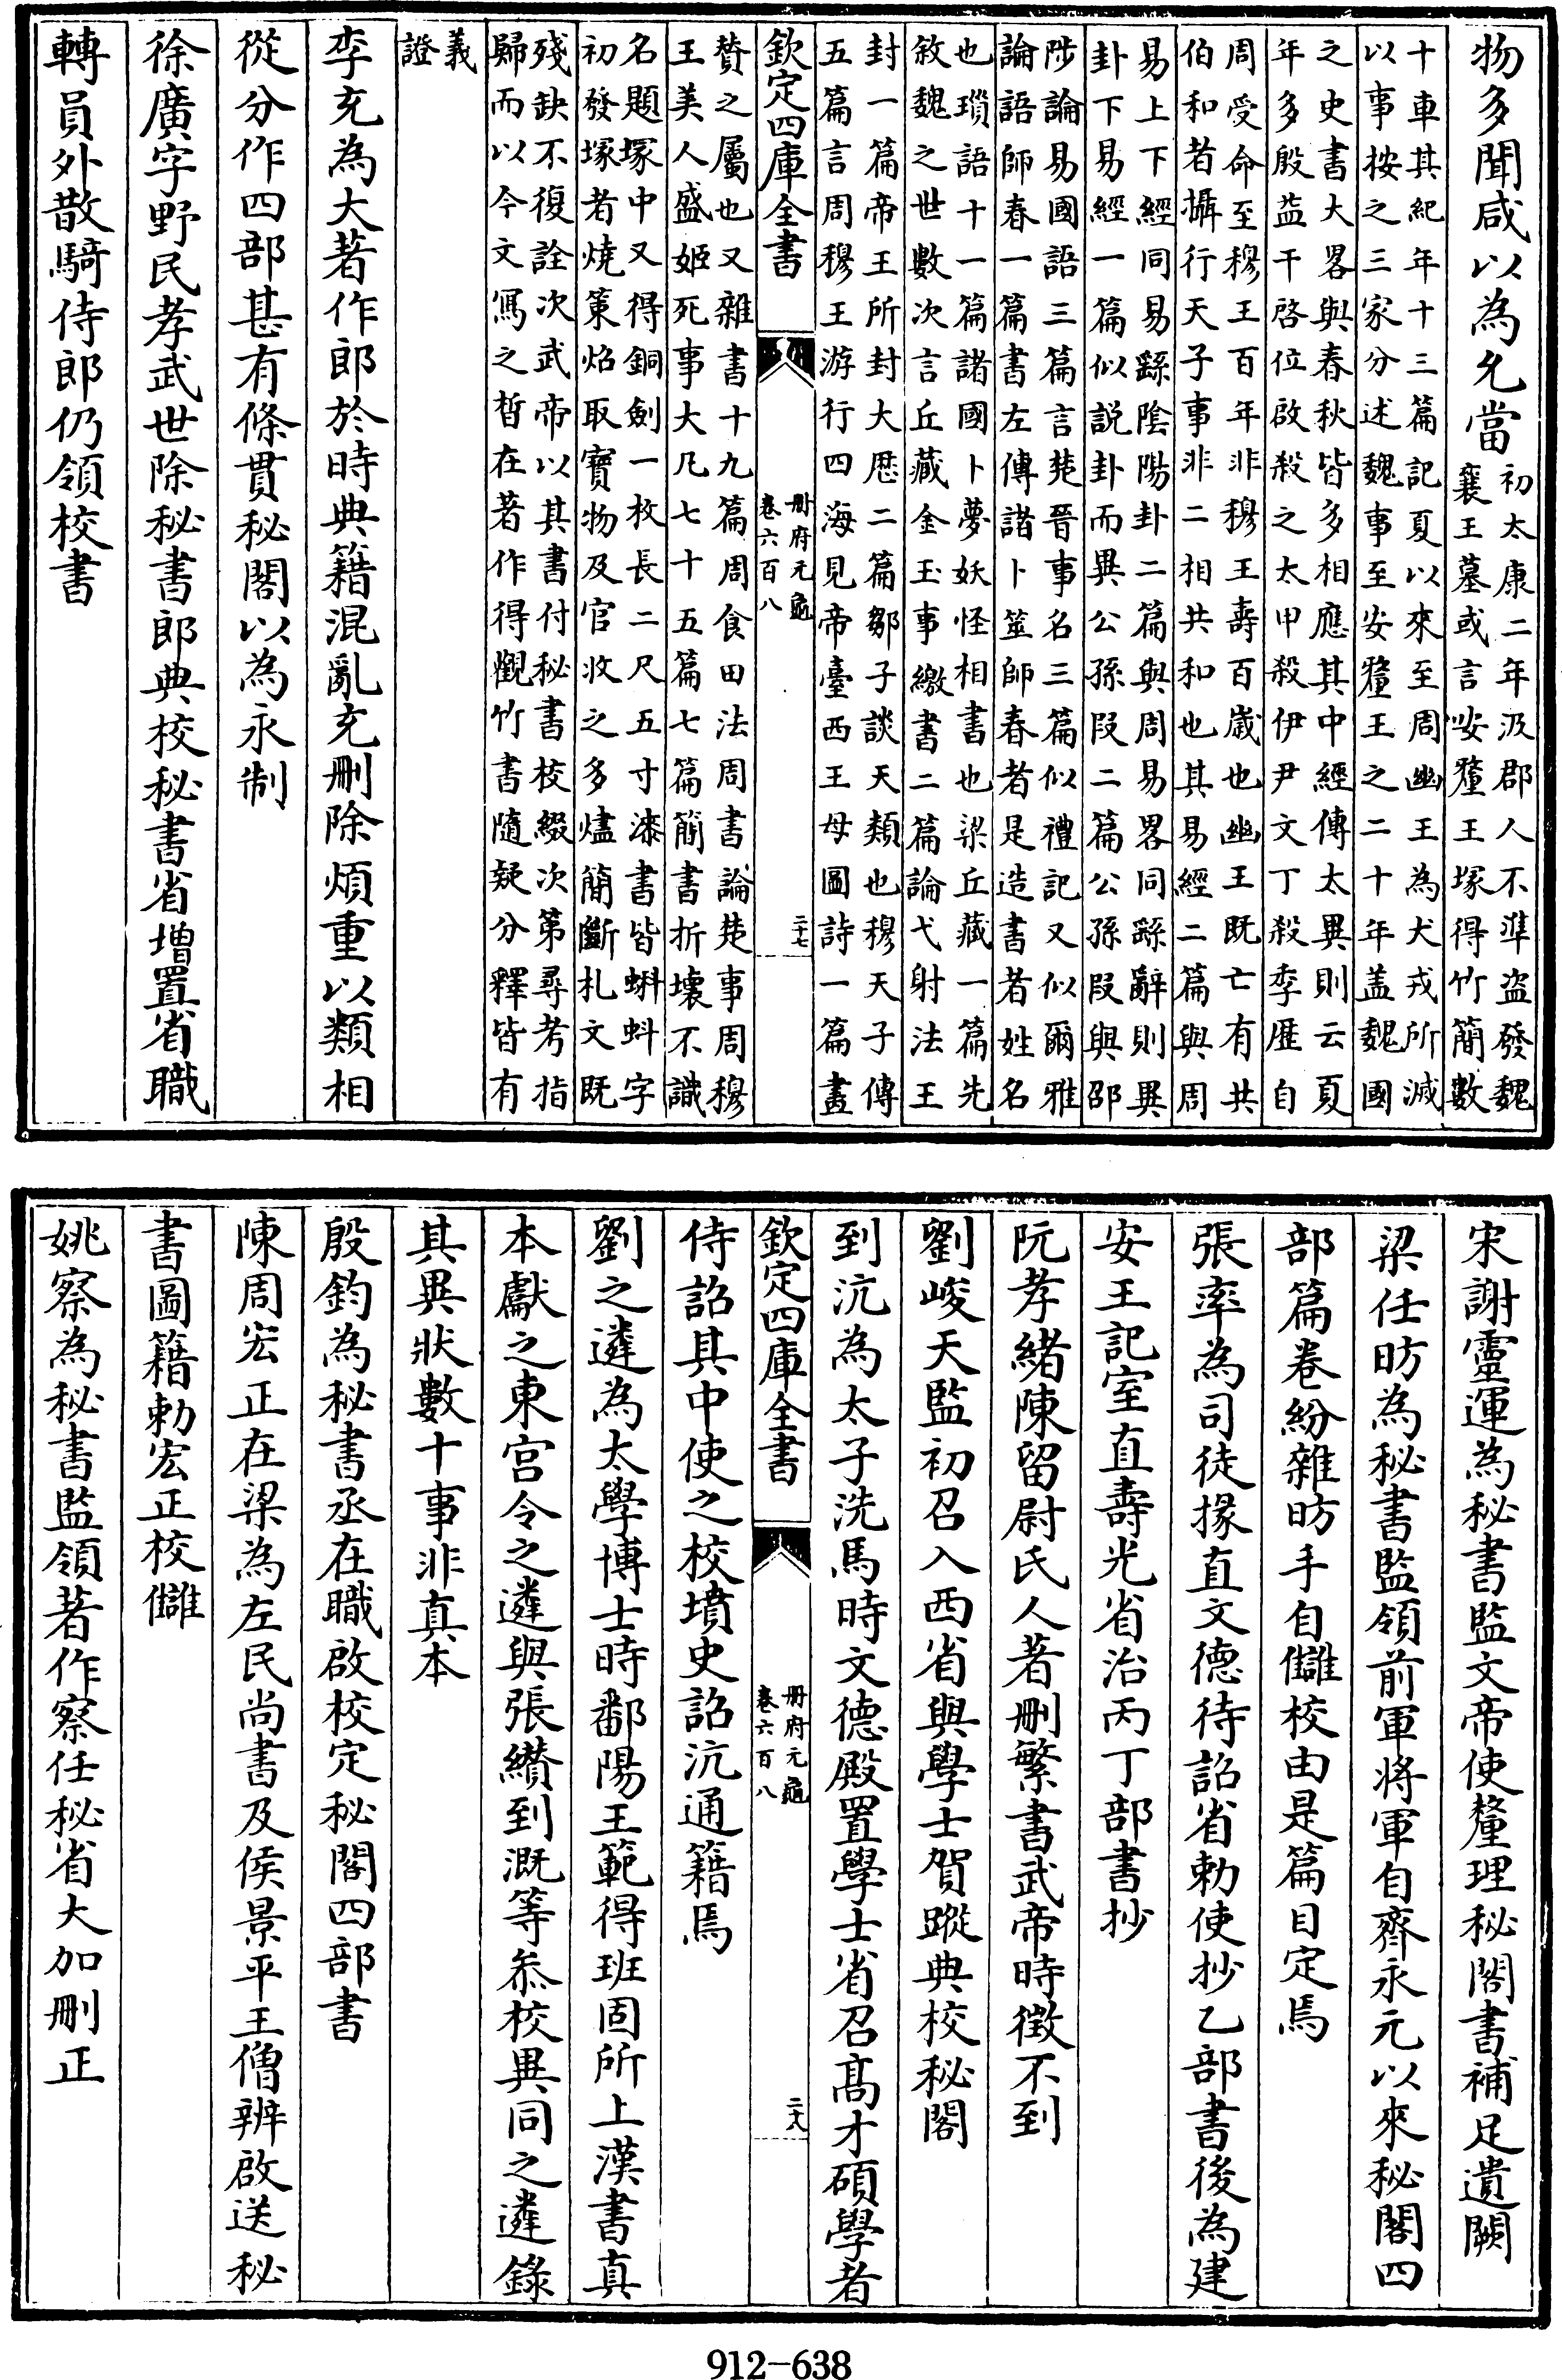 物多聞咸以為允當
初太康二年汲郡人不準盜發魏
襄王墓或言安釐王塚得竹簡數
十車其紀年十三篇記夏以來至周幽王為犬戎所滅
以事按之三家分述魏事至安釐王之二十年盖魏國
之史書大畧與春秋皆多相應其中經傳太異則云夏
年多殷益干啓位啟殺之太甲殺伊尹文丁殺季歷自
周受命至穆王百年非穆王壽百歲也幽王既亡有共
伯和者攝行天子事非二相共和也其易經二篇與周
易上下經同易繇陰陽卦二篇與周易畧同繇辭則異
卦下易經一篇似説卦而異公孫段二篇公孫段與邵
陟論易國語三篇言楚晉事名三篇似禮記又似爾雅
論語師春一篇書左傳諸卜筮師春者是造書者姓名
也瑣語十一篇諸國卜夢妖怪相書也梁丘藏一篇先
敘魏之世數次言丘藏金玉事繳書二篇論弋射法王
封一篇帝王所封大歴二篇鄒子談天類也穆天子傳
五篇言周穆王游行四海見帝臺西王母圖詩一篇畫
欽定四庫全書
冊府元龜
卷六百八
二十七
贊之屬也又雜書十九篇周食田法周書論楚事周穆
王美人盛姬死事大凡七十五篇七篇簡書折壞不識
名題塚中又得銅劍一枚長二尺五寸漆書皆蝌蚪字
初發塚者燒策焰取寶物及官收之多燼簡斷札文既
殘缺不復詮次武帝以其書付秘書校綴次第尋考指
歸而以今文寫之晳在著作得觀竹書隨疑分釋皆有
義
證
李充為大著作郎於時典籍混亂充刪除煩重以類相
從分作四部甚有條貫秘閣以為永制
徐廣字野民孝武世除秘書郎典校秘書省增置省職
轉員外散騎侍郎仍領校書
宋謝靈運為秘書監文帝使釐理秘閣書補足遺闕
梁任昉為秘書監領前軍將軍自齊永元以來秘閣四
部篇卷紛雜昉手自讎校由是篇目定焉
張率為司徒掾直文德待詔省勅使抄乙部書後為建
安王記室直壽光省治丙丁部書抄
阮孝緒陳留尉氏人著刪繁書武帝時徵不到
劉峻天監初召入西省與學士賀蹤典校秘閣
到沆為太子洗馬時文德殿置學士省召髙才碩學者
欽定四庫全書
冊府元龜
卷六百八
二十八
侍詔其中使之校墳史詔沆通籍焉
劉之遴為太學博士時鄱陽王範得班固所上漢書真
本獻之東宮令之遴與張纘到溉等叅校異同之遴錄
其異狀數十事非真本
殷鈞為秘書丞在職啟校定秘閣四部書
陳周宏正在梁為左民尚書及侯景平王僧辨啟送秘
書圖籍勅宏正校讎
姚察為秘書監領著作察任秘省大加刪正
912-638